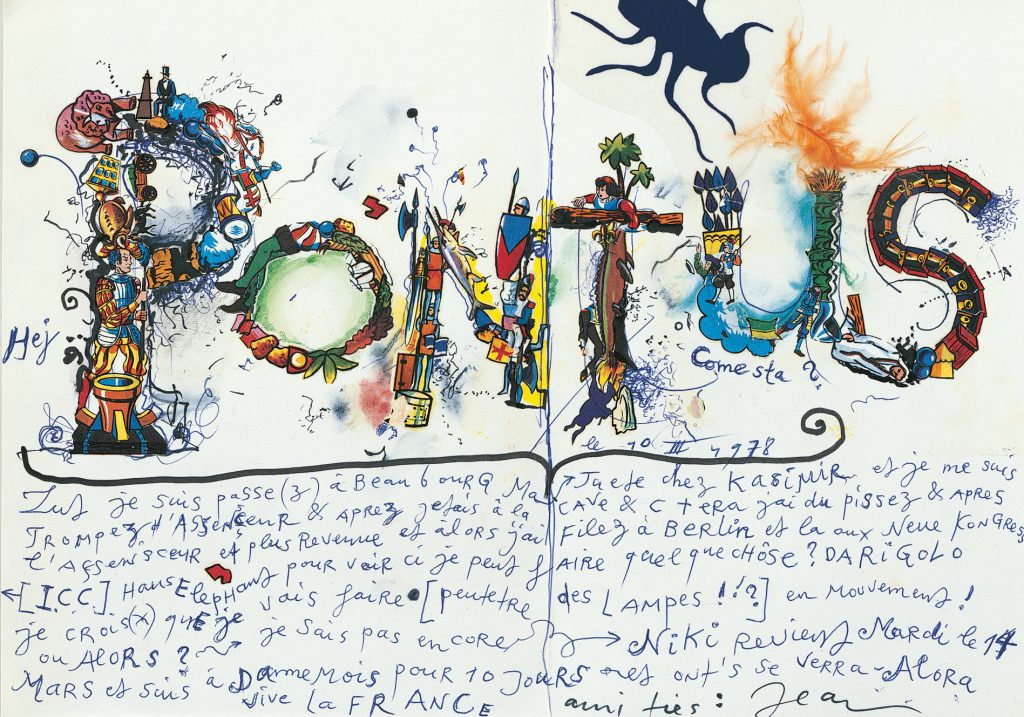 PONTUS
Hej
Comesta ?
le 10 III 1978
Zut je suis passe(z) à BeaubourG Ma J'aete chez KASIMIR et je me suis
TROMPEZ d'AssenSEUR & APREZ jetais à la CAVE & C tERA jai du pissez & APRES
l'AssensSCEUR et plus Revenue et AlORs j'ai FILEZ à BERLin et la aux Neue KONGRESS
[I.C.C.] HansElepHant pour voir ci je peut fAIRE quelqueCHÔSE? DARIGOLO
je CROis(x) quE je vais faire [peutetre des LAMPES !!?] en Mouvement!
ou AlORs ? je Sais pas encore NiKi Revient Mardi le 14
MARS et suis à Dannemois pour 10 JOURS et ont's se verra - AlORA
vive La FRANCE amities : Jean